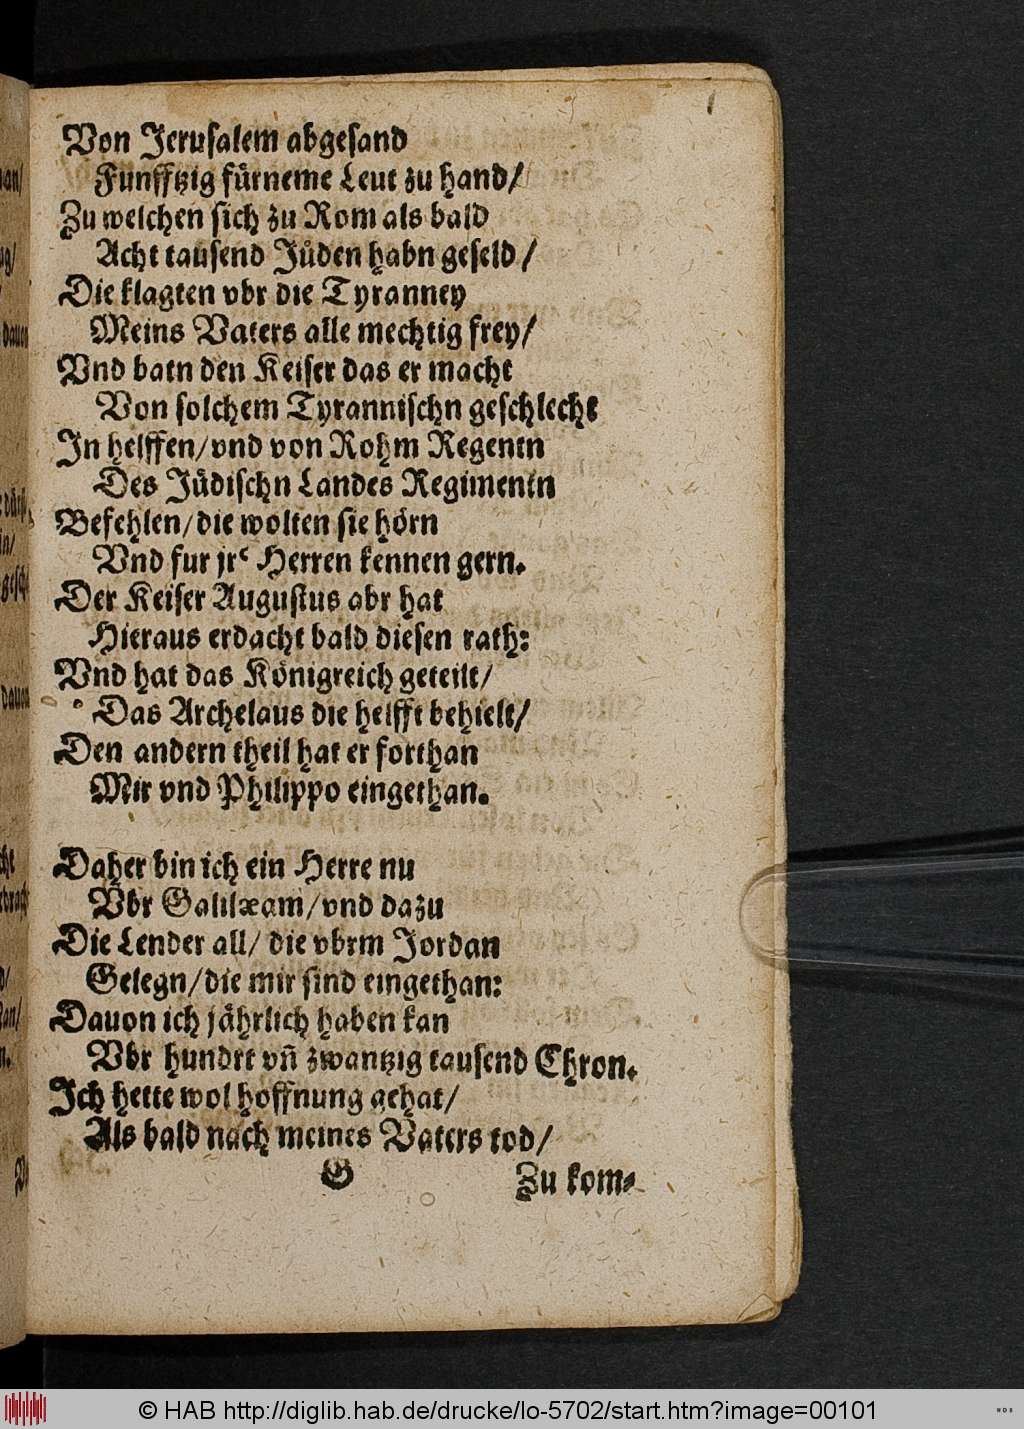 Von Jerusalem abgesand
Funfftzig fürneme Leut zu hand/
Zu welchen sich zu Rom als bald
Acht tausend Jüden habn geseld/
Die klagten vbr die Tyranney
Meins Vaters alle mechtig frey/
Vnd batn den Keiser das er macht
Von solchem Tyrannischn geschlecht
In helffen/vnd von Rohm Regentn
Des Jüdischn Landes Regimentn
Befehlen/die wolten sie hörn
Vnd fur jrᶜ Herren kennen gern.
Der Keiser Augustus abr hat
Hieraus erdacht bald diesen rath:
Vnd hat das Königreich geteilt/
Das Archelaus die helfft behielt/
Den andern theil hat er forthan
Mir vnd Philippo eingethan.
Daher bin ich ein Herre nu
Vbr Galilæam/vnd dazu
Die Lender all/ die vbrm Jordan
Gelegn/die mir sind eingethan:
Dauon ich jährlich haben kan
Vbr hundrt vñ zwantzig tausend Chron.
Ich hette wol hoffnung gehat/
Als bald nach meines Vaters tod/
G Zu kom-
© HAB http://diglib.hab.de/drucke/lo-5702/start.htm?image=00101